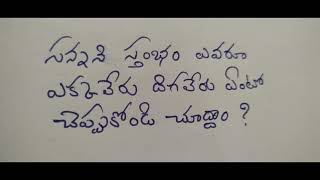 సన్నని స్తంభం ఎవరూ
ఎక్కలేరు దిగలేరు ఏంటో
చెప్పుకోండి చూద్దాం ?